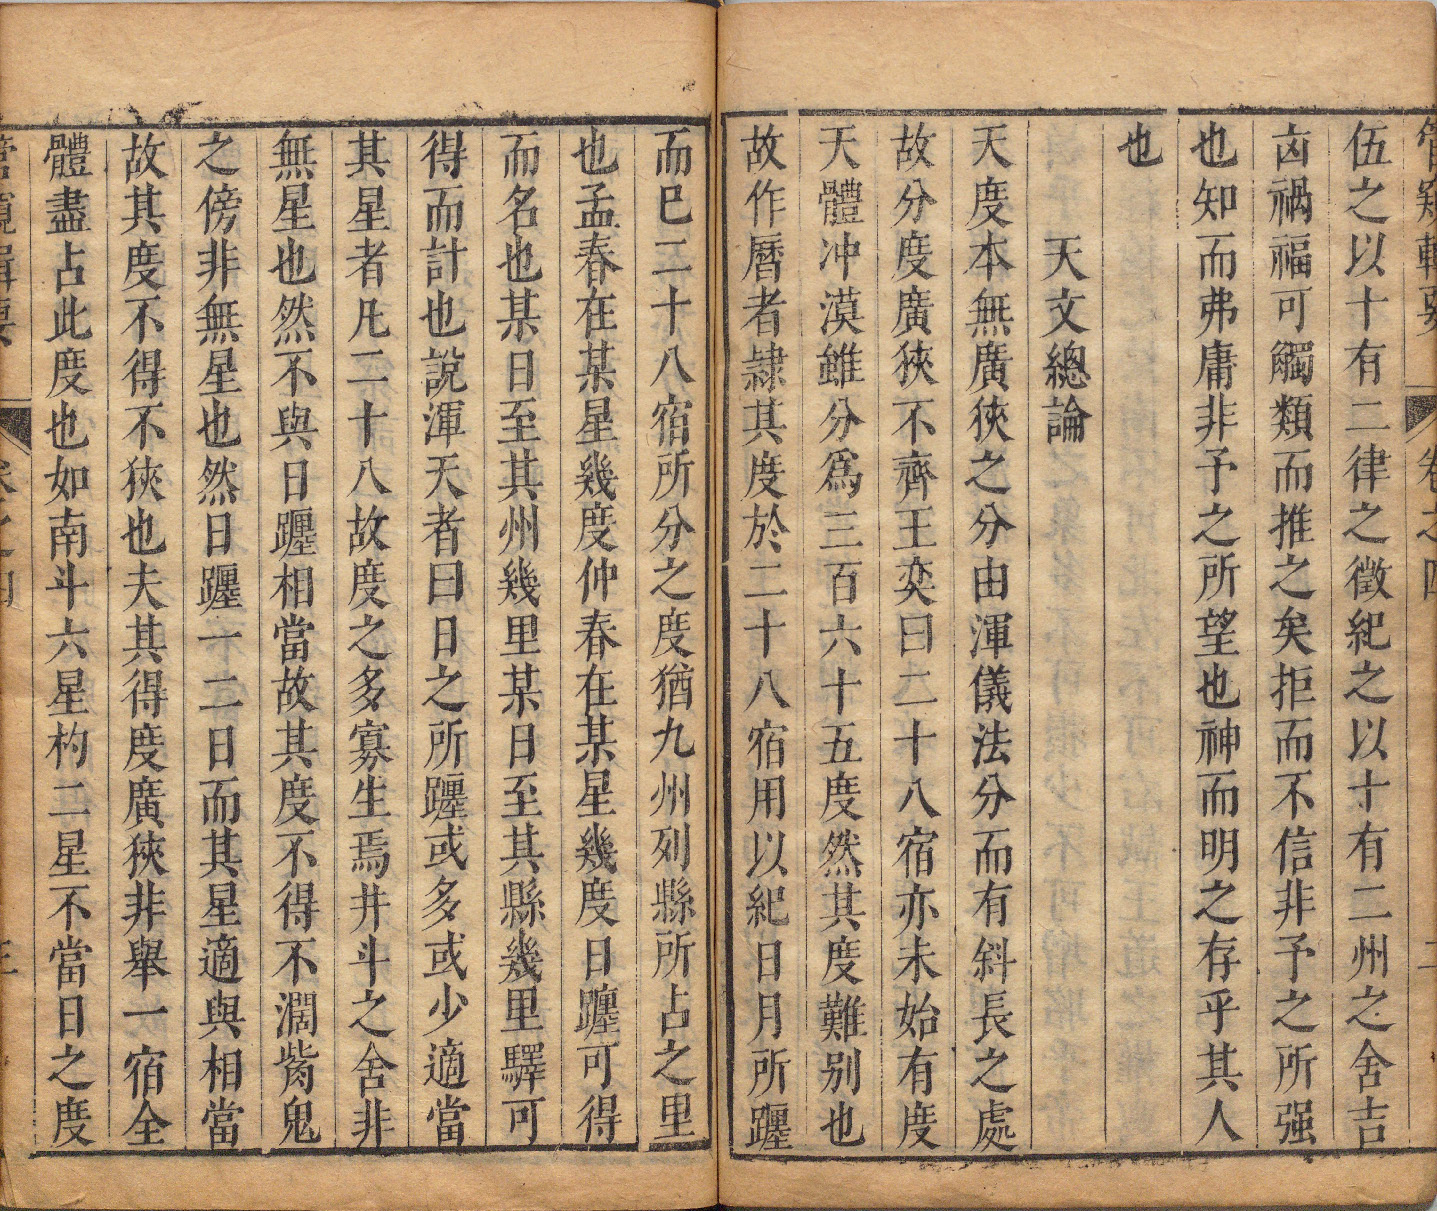 管窺輯要 卷之四 二
伍之以十有二律之徵紀之以十有二州之舍吉
凶禍福可觸類而推之矣拒而不信非予之所强
也知而弗庸非予之所望也神而明之存乎其人
也
天文總論
天度本無廣狹之分由渾儀法分而有斜長之處
故分度廣狹不齊王奕曰二十八宿亦未始有度
天體冲漠雖分爲三百六十五度然其度難别也
故作曆者隷其度於二十八宿用以紀日月所躔
而巳二十八宿所分之度猶九州列縣所占之里
也孟春在某星幾度仲春在某星幾度日躔可得
而名也某日至其州幾里某日至其縣幾里驛可
得而計也說渾天者曰日之所躔或多或少適當
其星者凡二十八故度之多寡生焉井斗之舍非
無星也然不與日躔相當故其度不得不濶觜鬼
之傍非無星也然日躔一二日而其星適與相當
故其度不得不狹也夫其得度廣狹非舉一宿全
體盡占此度也如南斗六星杓二星不當日之度
管窺輯要 卷之四 三